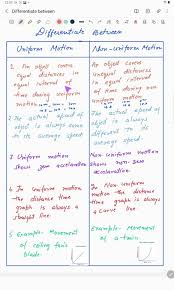 Differentiate between
Differentiate Between
Uniform Motion
1 An object cover
equal distance in
equal interval of
time during uniform
motion
2 The actual speed of
object is always same
to its average speed.
3 Uniform motion
show zero acceleration
4 In Uniform motion
the distance time
graph is always a
straight line
5 Example- Movement
of ceiling fan's
blade.
Non-uniform Motion
An object cover
unequal distance
in equal interval
of time during
motion
The actual speed
of object is
always
different to its
average speed.
Non uniform motion
show non-zero
acceleration.
In Non-uniform
motion the distance
time graph is always
a curve line
Example- Movement
of a train.